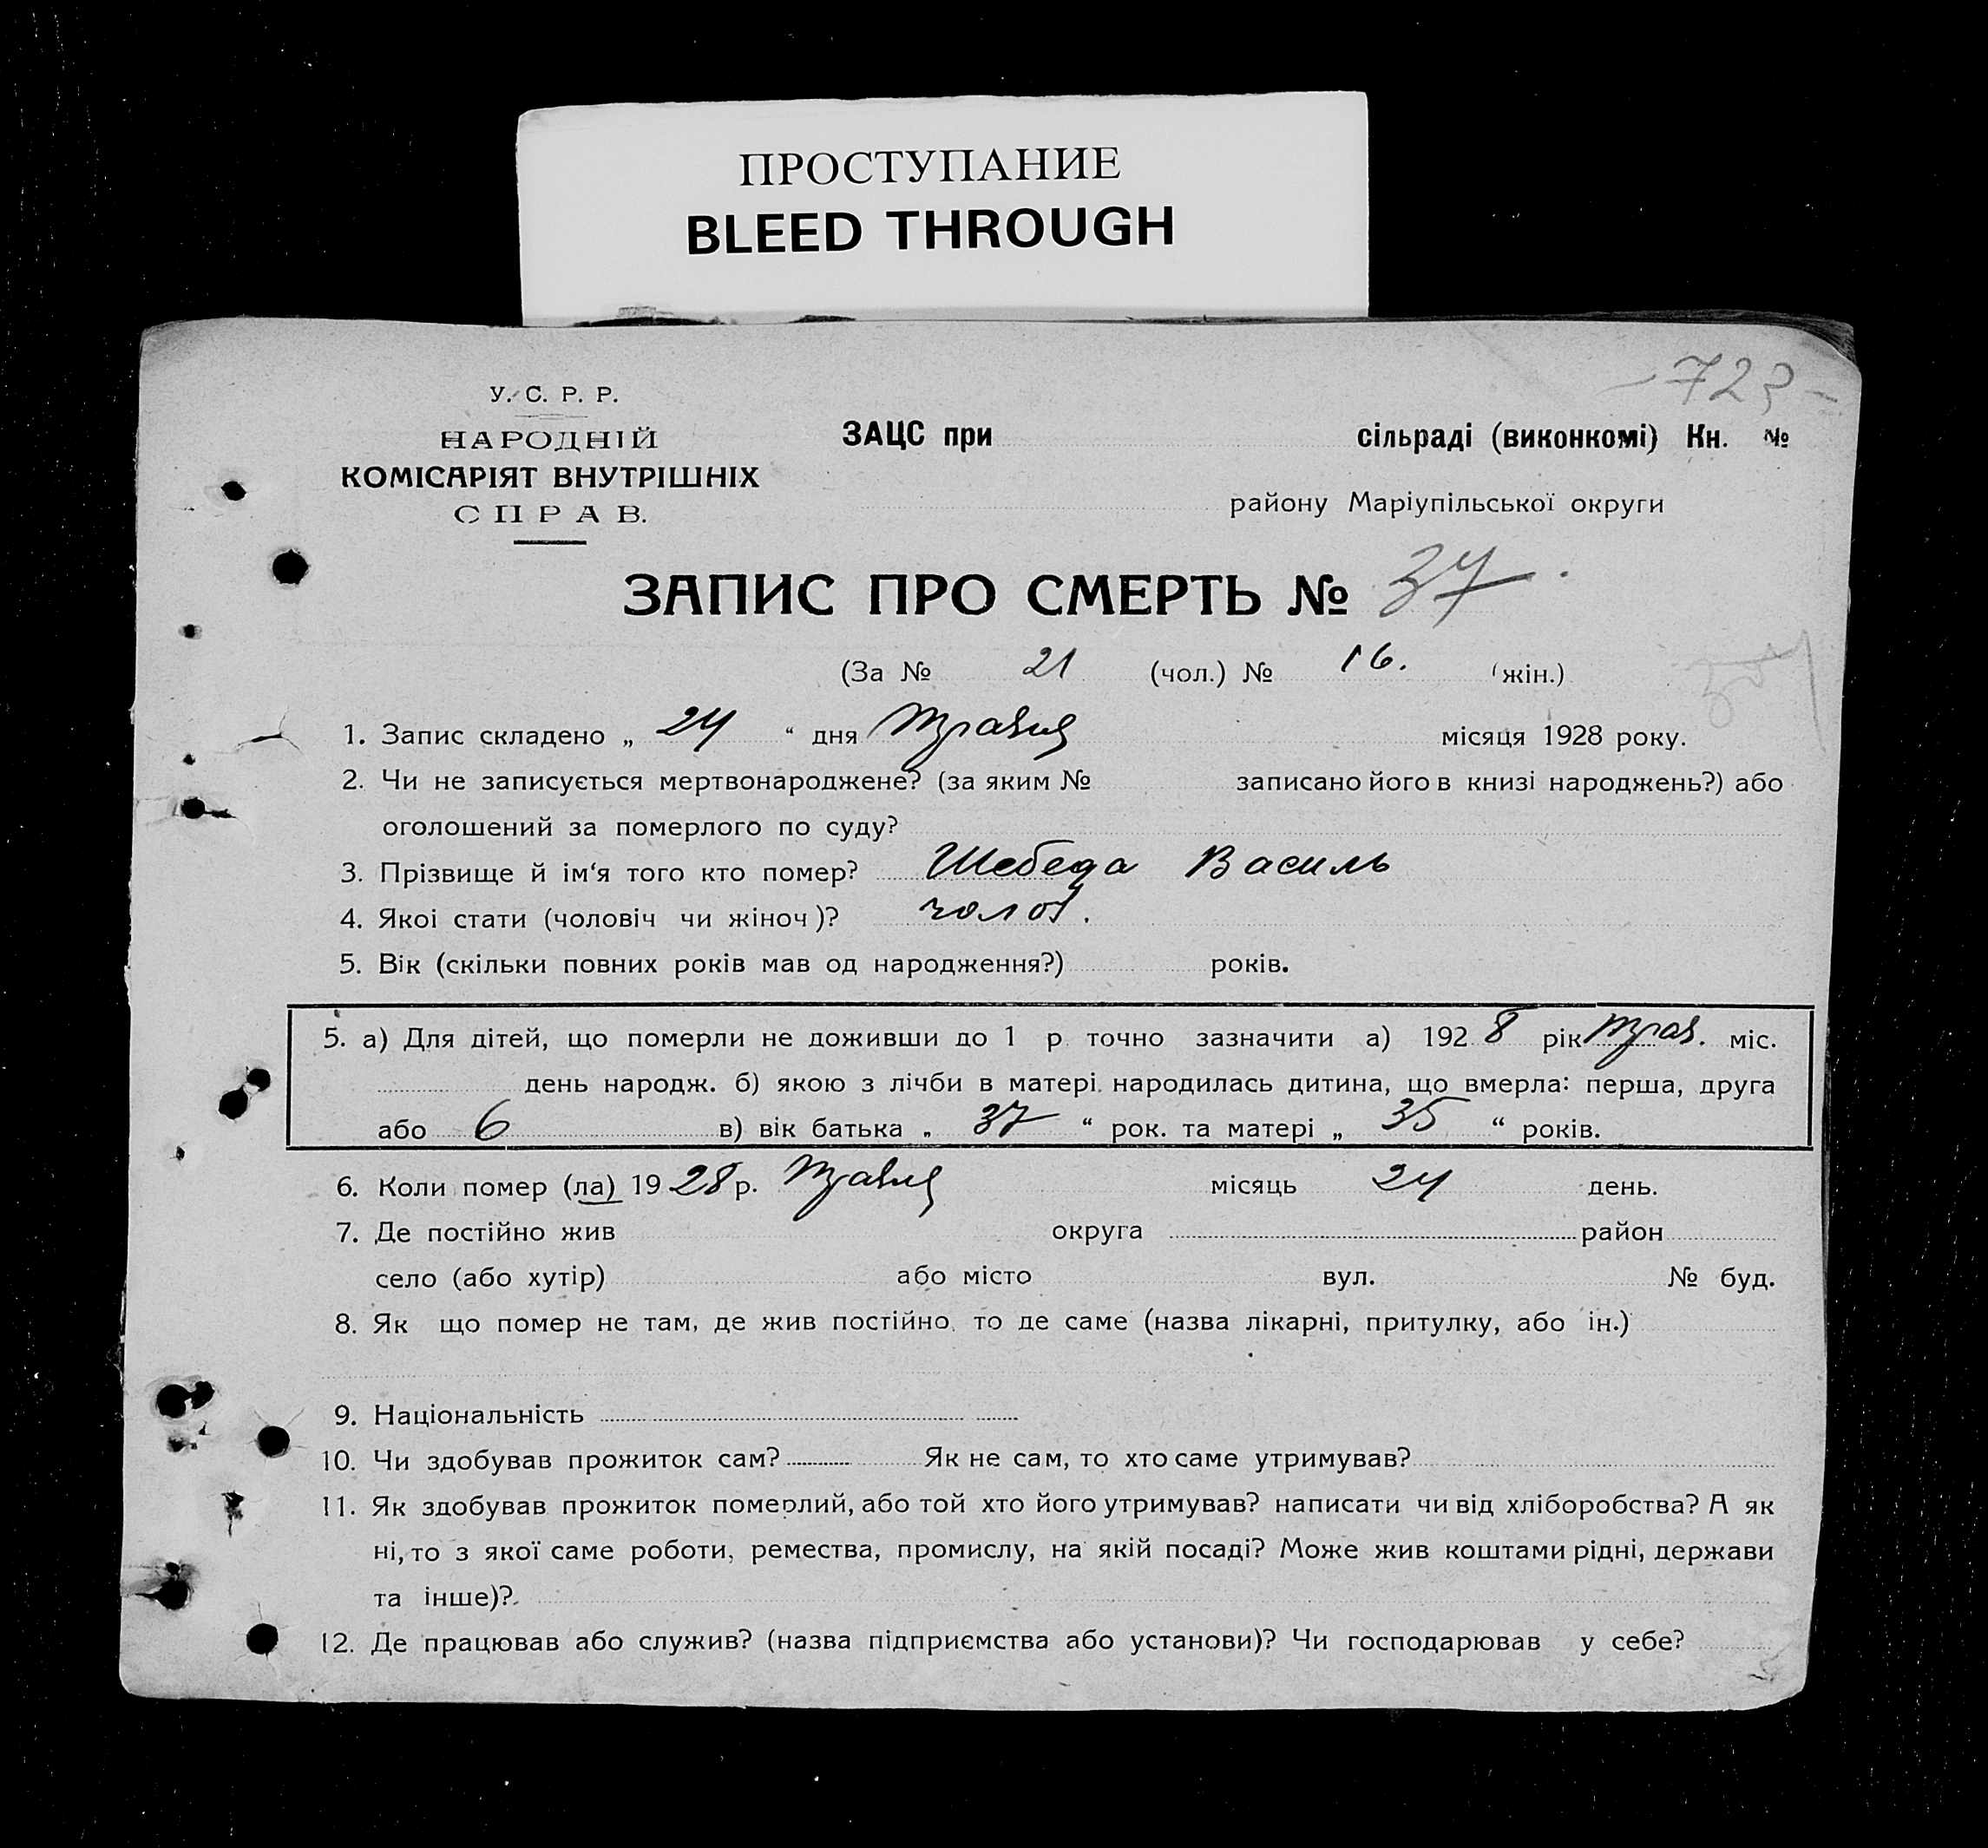 ПРОСТУПАНИЕ
BLEED THROUGH
- 723 -
У. С. Р. Р.
НАРОДНІЙ
КОМІСАРІЯТ ВНУТРІШНІХ
СПРАВ.
ЗАЦС при сільраді (виконкомі) Кн. №
району Маріупільської округи
ЗАПИС ПРО СМЕРТЬ № 37.
(За № 21 (чол.) № 16. (жін.)
1. Запис складено „ 24 “ дня травня місяця 1928 року.
2. Чи не записується мертвонароджене? (за яким № записано його в книзі народжень?) або
оголошений за померлого по суду?
3. Прізвище й ім‘я того кто помер? Шебеда Василь
4. Якоі стати (чоловіч чи жіноч)? чолов.
5. Вік (скільки повних років мав од народження?) років.
5. а) Для дітей, що померли не доживши до 1 р. точно зазначити а) 1928 рік трав. міс.
день народж. б) якою з лічби в матері народилась дитина, що вмерла: перша, друга
або 6 в) вік батька „ 37 “ рок. та матері „ 35 “ років.
6. Коли помер (ла) 1928 р. травня місяць 24 день.
7. Де постійно жив округа район
село (або хутір) або місто вул. № буд.
8. Як що помер не там, де жив постійно, то де саме (назва лікарні, притулку, або ін.)
9. Національність
10. Чи здобував прожиток сам? Як не сам, то хто саме утримував?
11. Як здобував прожиток померлий, або той хто його утримував? написати чи від хліборобства? А як
ні, то з якої саме роботи, ремества, промислу, на якій посаді? Може жив коштами рідні, держави
та інше)?
12. Де працював або служив? (назва підприємства або установи)? Чи господарював у себе?